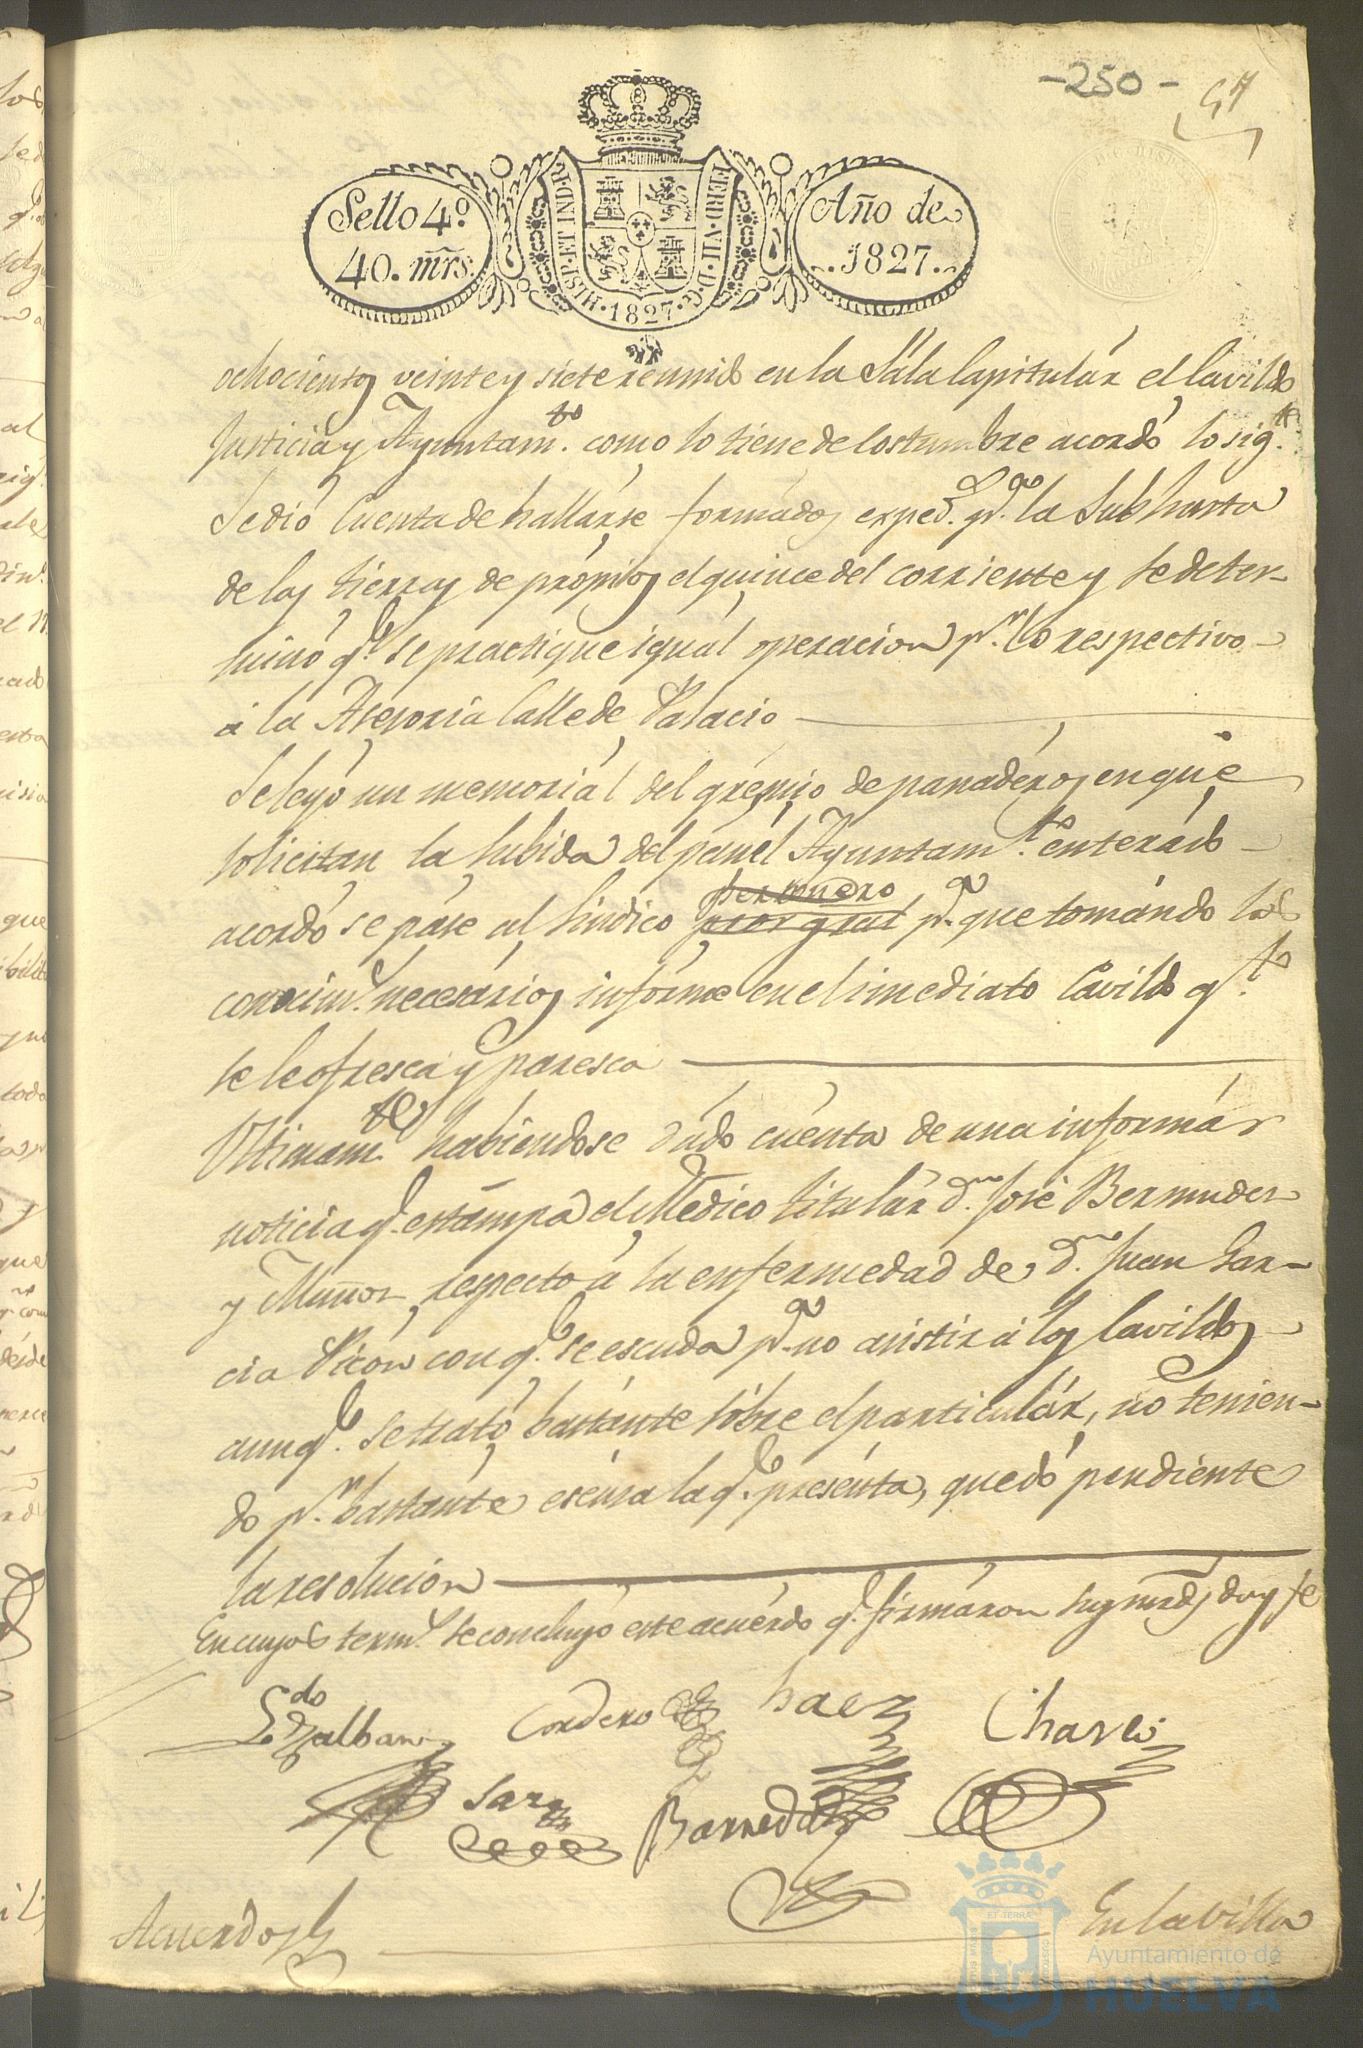 -250-
57
Sello 4º
40. mrs.
HISP. ET IND. R.
FERD. VII. D. G.
·1827·
Año de
1827.
ochocientos veinte y siete reunido en la Sala Capitulár el Cavildo
Justicia y Ayuntam.to como lo tiene de Costumbre acordó lo sig.te
Se dió Cuenta de hallarse formados exped.s p.a la Subhasta
de las tierras de própios el quince del corriente y se deter-
minó q.e se practique igual operacion p.r lo respectivo
á la Asesoria Calle de Palacio
Se leyó un memorial del gremio de panaderos en que
solicitan la subida del pan el Ayuntam.to enterádo
acordó se páse al Sindico personero p.a que tomándo los
conocim.s necesários informe en el imediato Cavildo q.to
se le ofresca y paresca
Ultimam.te habiendose dádo cuenta de una informár
noticia q. estampa el Médico titulár D.n José Bermudez
y Muñoz respecto á la enfermedad de D.n Juan Gar-
cia Picón con q.e se escuda p.a no asistir á los Cavildos
aunq.e se trató bastante sóbre el particulár, no tenien-
do p.r bastante escúsa la q.e presénta, quedó pendiente
la resolución
En cuyos term.s se concluyó este acuérdo q.e firmáron sus mrds doy fe
L.do Galban
Cordero
Saez
Chaves
Barreda
Acuerdo
En la villa
Ayuntamiento de
HUELVA